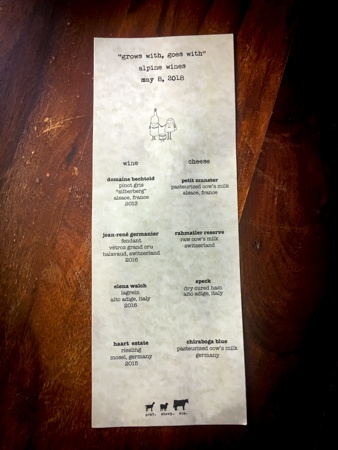 "grows with, goes with"
alpine wines
may 8, 2018
wine
cheese
domaine bechtold
pinot gris
"silberberg"
alsace, france
2012
petit munster
pasteurized cow's milk
alsace, france
jean-rené germanier
fendant
vétroz grand cru
balavaud, switzerland
2016
rahmaller reserve
raw cow's milk
switzerland
elena walch
lagrein
alto adige, italy
2016
speck
dry cured ham
alto adige, italy
haart estate
riesling
mosel, germany
2015
chiraboga blue
pasteurized cow's milk
germany
goat. sheep. cow.